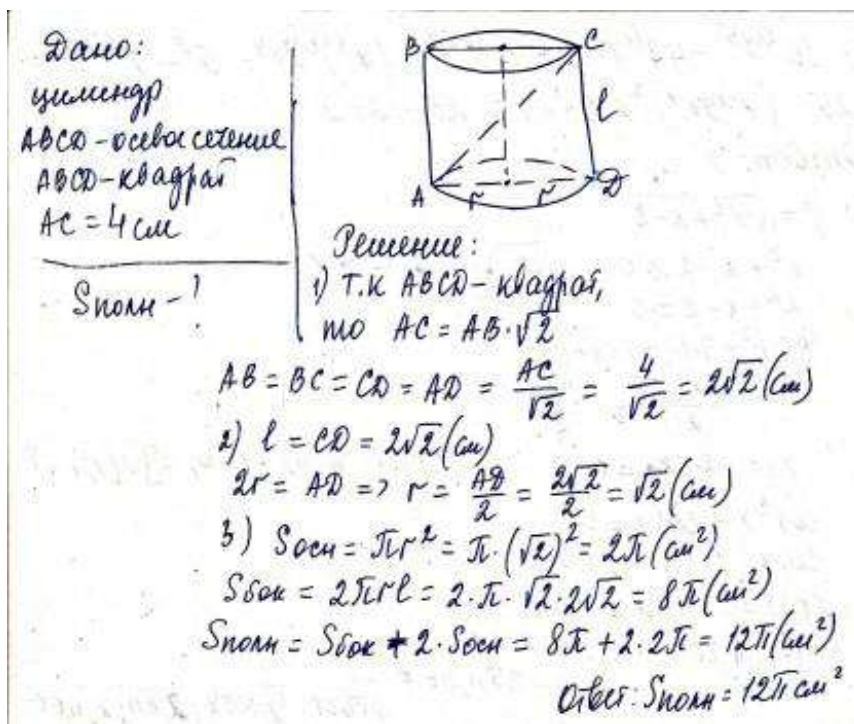 Дано:
цилиндр
ABCD - осевое сечение
ABCD - квадрат
AC = 4 см
Sполн - ?
B C
l
A r r D
Решение:
1) Т.к ABCD - квадрат,
то AC = AB·√2
AB = BC = CD = AD = AC/√2 = 4/√2 = 2√2 (см)
2) l = CD = 2√2 (см)
2r = AD => r = AD/2 = 2√2/2 = √2 (см)
3) Sосн = πr² = π·(√2)² = 2π (см²)
Sбок = 2πrl = 2·π·√2·2√2 = 8π (см²)
Sполн = Sбок + 2·Sосн = 8π + 2·2π = 12π (см²)
Ответ: Sполн = 12π см²